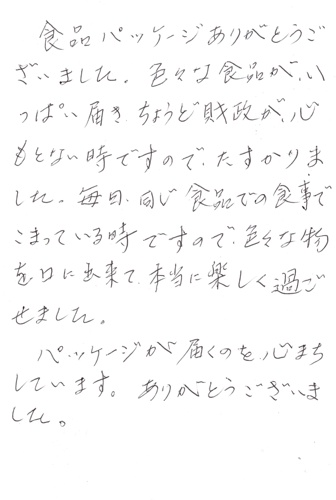 食品パッケージありがとうご
ざいました。色々な食品が、い
っぱい届き、ちょうど財政が、心
もとない時ですので、たすかりま
した。毎日、同じ食品での食事で
こまっている時ですので、色々な物
を口に出来て、本当に楽しく過ご
せました。
パッケージが届くのを、心まち
しています。ありがとうございま
した。